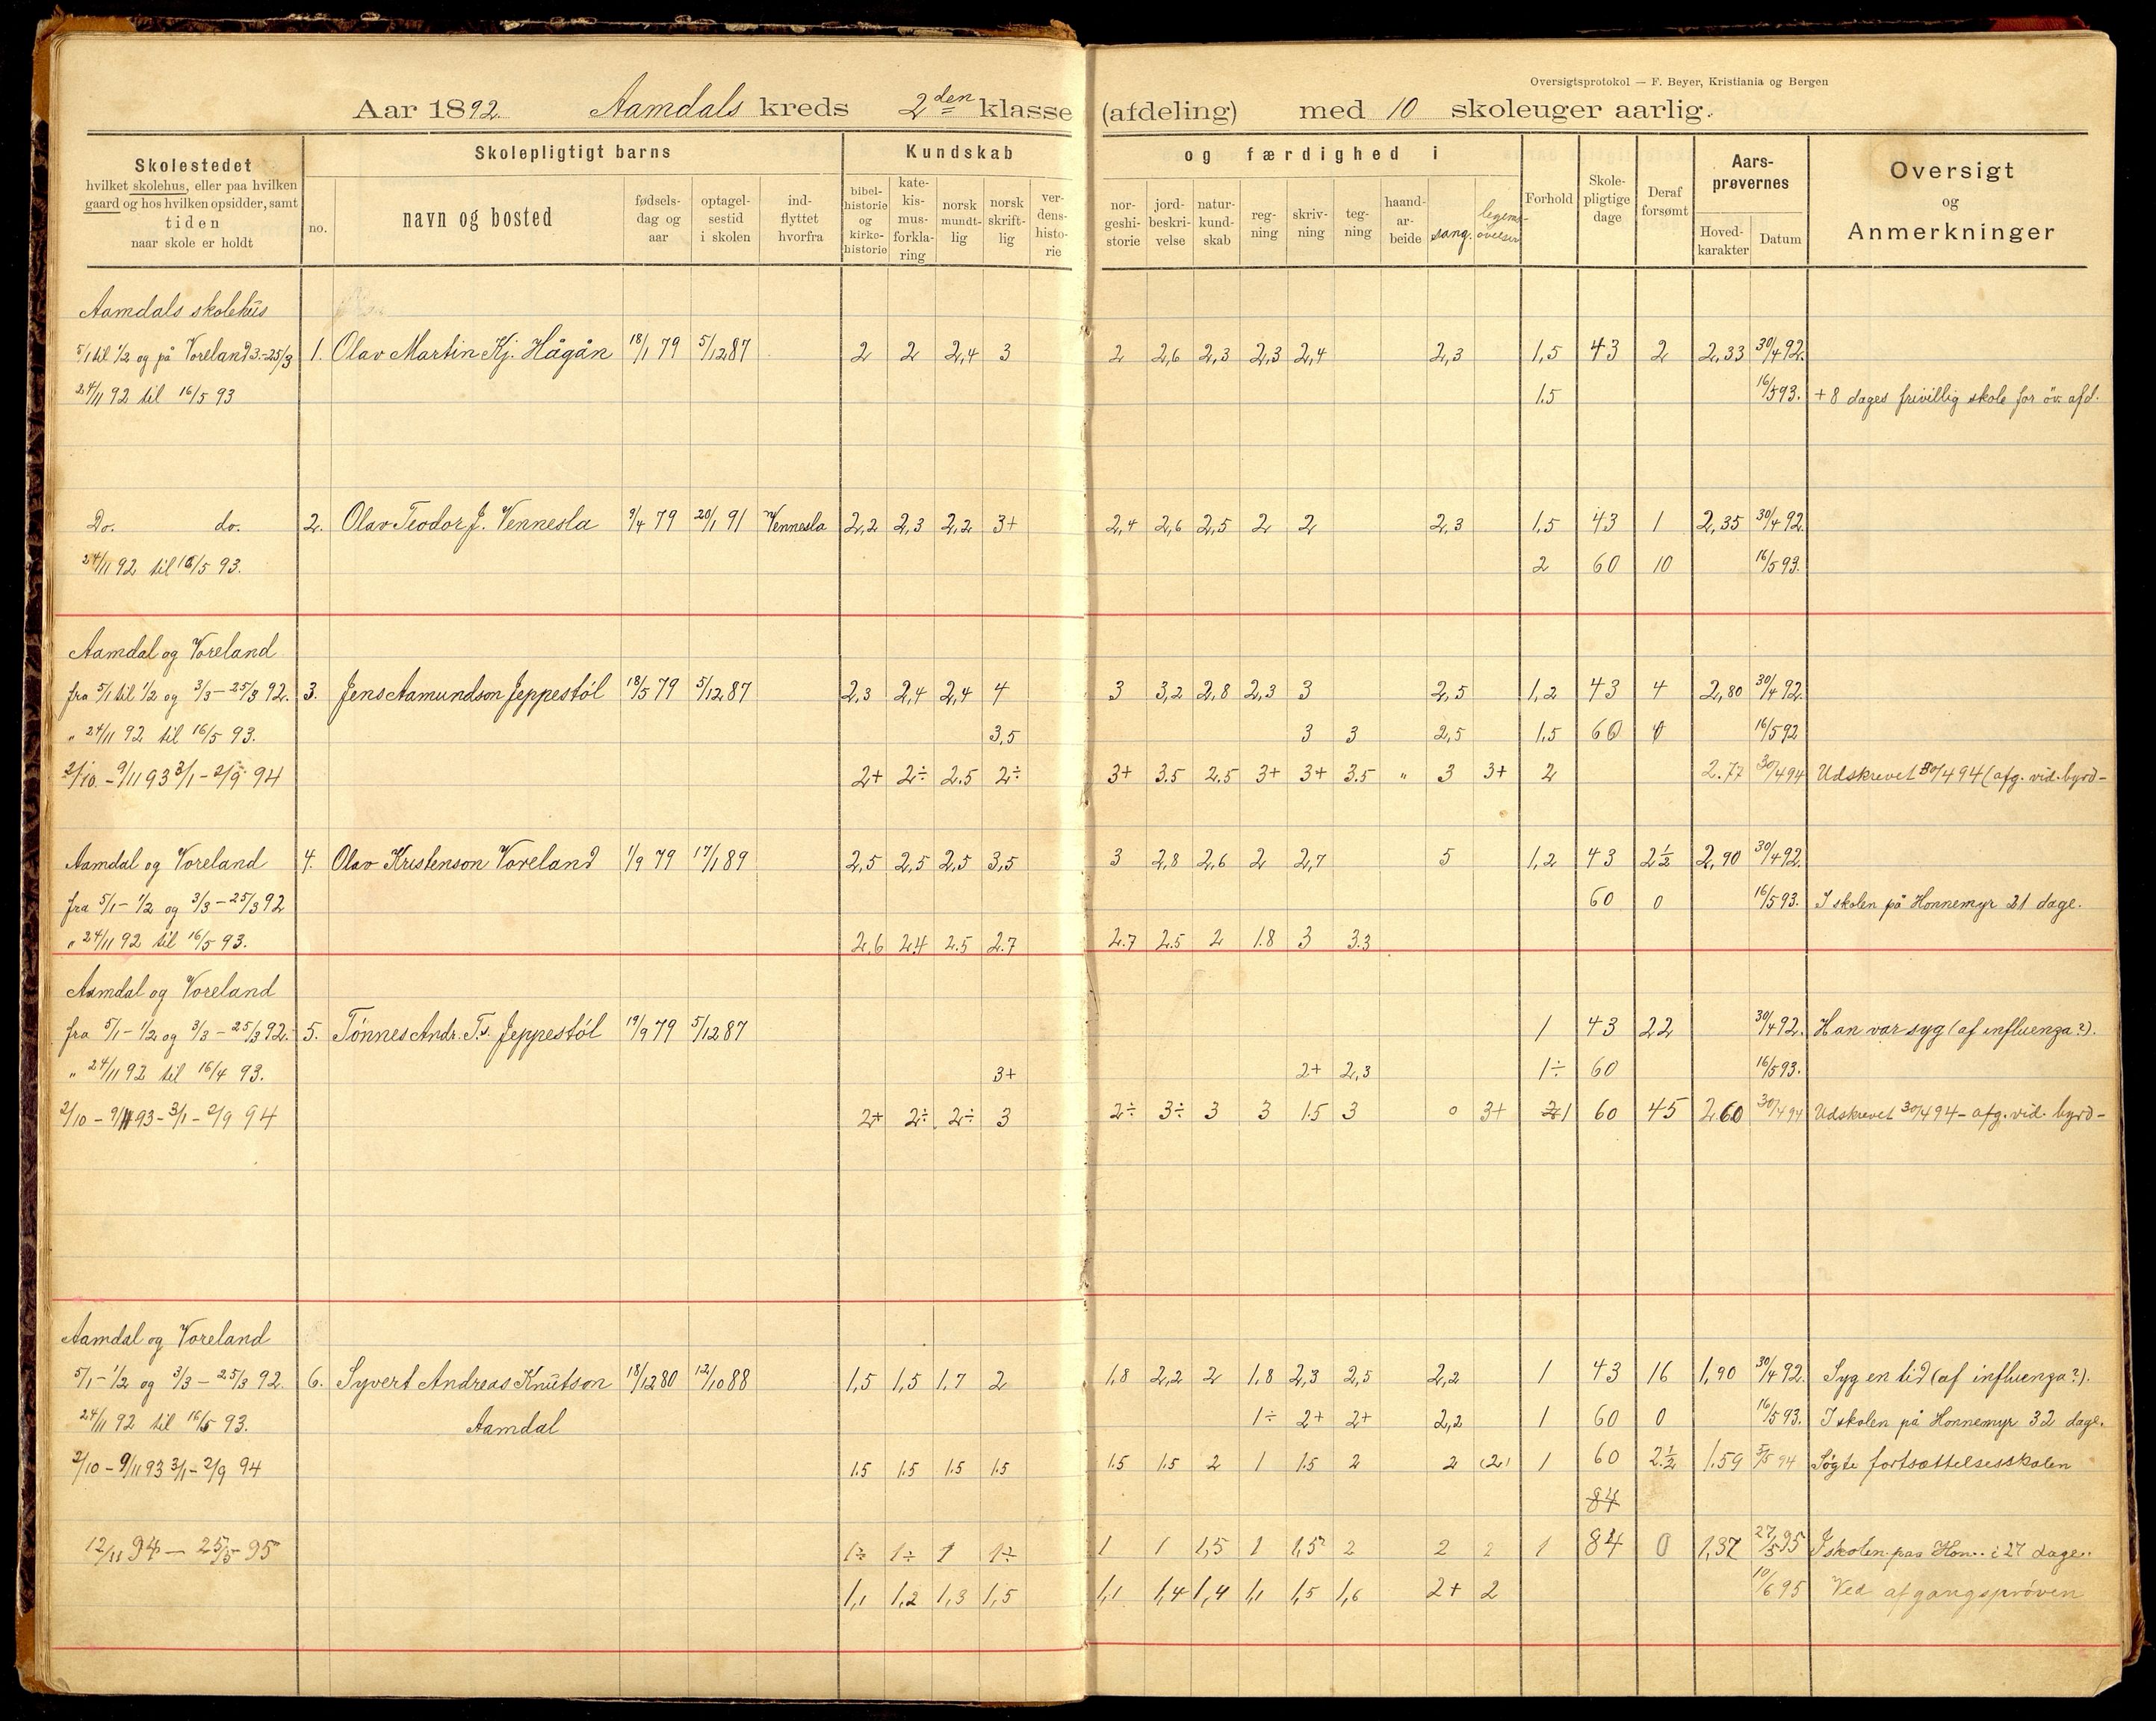 Oversigtsprotokol — F. Beyer, Kristiania og Bergen
Aar 1892. Aamdals kreds 2den klasse (afdeling) med 10 skoleuger aarlig.
Skolestedet
hvilket skolehus, eller paa hvilken
gaard og hos hvilken opsidder, samt
tiden
naar skole er holdt
Skolepligtigt barns
no.
navn og bosted
fødsels-
dag og
aar
optagel-
sestid
i skolen
ind-
flyttet
hvorfra
Kundskab og færdighed i
bibel-
historie
og
kirke-
historie
kate-
kis-
mus-
forkla-
ring
norsk
mundt-
lig
norsk
skrift-
lig
ver-
dens-
histo-
rie
nor-
geshi-
storie
jord-
beskri-
velse
natur-
kund-
skab
reg-
ning
skriv-
ning
teg-
ning
haand-
ar-
beide
sang.
legems-
øvelser
Forhold
Skole-
pligtige
dage
Deraf
forsømt
Aars-
prøvernes
Hoved-
karakter
Datum
Oversigt
og
Anmerkninger
Aamdals skolehus
5/1 til 1/2 og på Voreland 3.-25/3 1. Olav Martin Kj. Hågån 18/1 79 5/12 87 2 2 2,4 3 2 2,6 2,3 2,3 2,4 2,3 1,5 43 2 2,33 30/4 92.
24/11 92 til 16/5 93 1.5 16/5 93. + 8 dages frivillig skole for öv. afd.
Do. do. 2. Olav Teodor J. Vennesla 9/4 79 20/1 91 Vennesla 2,2 2,3 2,2 3+ 2,4 2,6 2,5 2 2 2,3 1,5 43 1 2,35 30/4 92.
24/11 92 til 16/5 93. 2 60 10 16/5 93.
Aamdal og Voreland
fra 5/1 til 1/2 og 3/3 - 25/3 92. 3. Jens Aamundson Jeppestól 18/5 79 5/12 87 2,3 2,4 2,4 4 3 3,2 2,8 2,3 3 2,5 1,2 43 4 2,80 30/4 92.
" 24/11 92 til 16/5 93. 3,5 3 3 2,5 1.5 60 16/5 92
2/10 - 9/11 93 3/1 - 2/9 94 2+ 2÷ 2.5 2÷ 3+ 3.5 2,5 3+ 3+ 3.5 " 3 3+ 2 2.77 30/4 94 Udskrevet 30/4 94 (afg. vid. byrd-
Aamdal og Voreland 4. Olav Kristenson Voreland 1/9 79 17/1 89 2,5 2,5 2,5 3,5 3 2,8 2,6 2 2,7 5 1,2 43 2 1/2 2,90 30/4 92.
fra 5/1 - 1/2 og 3/3 - 25/3 92 60 0 16/5 93. I skolen på Honnemyr 21 dage.
" 24/11 92 til 16/5 93. 2,6 2.4 2.5 2.7 2.7 2.5 2 1.8 3 3.3
Aamdal og Voreland
fra 5/1 - 1/2 og 3/3 - 25/3 92. 5. Tónnes Andr. Ts. Jeppestól 19/9 79 5/12 87 1 43 22 30/4 92. Han var syg (af influenza?).
" 24/11 92 til 16/4 93. 3+ 2+ 2,3 1÷ 60 16/5 93.
2/10 - 9/11 93 - 3/1 - 2/9 94 2+ 2÷ 2÷ 3 2÷ 3÷ 3 3 1.5 3 0 3+ 1 60 45 2.60 30/4 94 Udskrevet 30/4 94 - afg. vid. byrd-
Aamdal og Voreland
5/1 - 1/2 og 3/3 - 25/3 92. 6. Syvert Andreas Knutson 18/12 80 12/10 88 1,5 1,5 1,7 2 1,8 2,2 2 1,8 2,3 2,5 2,2 1 43 16 1,90 30/4 92. Syg en tid (af influenza?).
24/11 92 til 16/5 93. Aamdal 1÷ 2+ 2+ 2,2 1 60 0 16/5 93. I skolen på Honnemyr 32 dage.
2/10 - 9/11 93 3/1 - 2/9 94 1.5 1.5 1.5 1.5 1.5 1.5 2 1 1.5 2 2 (2) 1 60 2.1/2 1.59 5/5 94 Søgte fortsættelsesskolen
84
12/11 94 - 25/5 95 1÷ 1÷ 1 1÷ 1 1 1,5 1 1,5 2 2 2 1 84 0 1,37 27/5 95 I skolen paa Hon.. i 27 dage.
1,1 1,2 1,3 1,5 1,1 1,4 1,4 1,1 1,5 1,6 2+ 2 10/6 95 Ved afgangsprøven